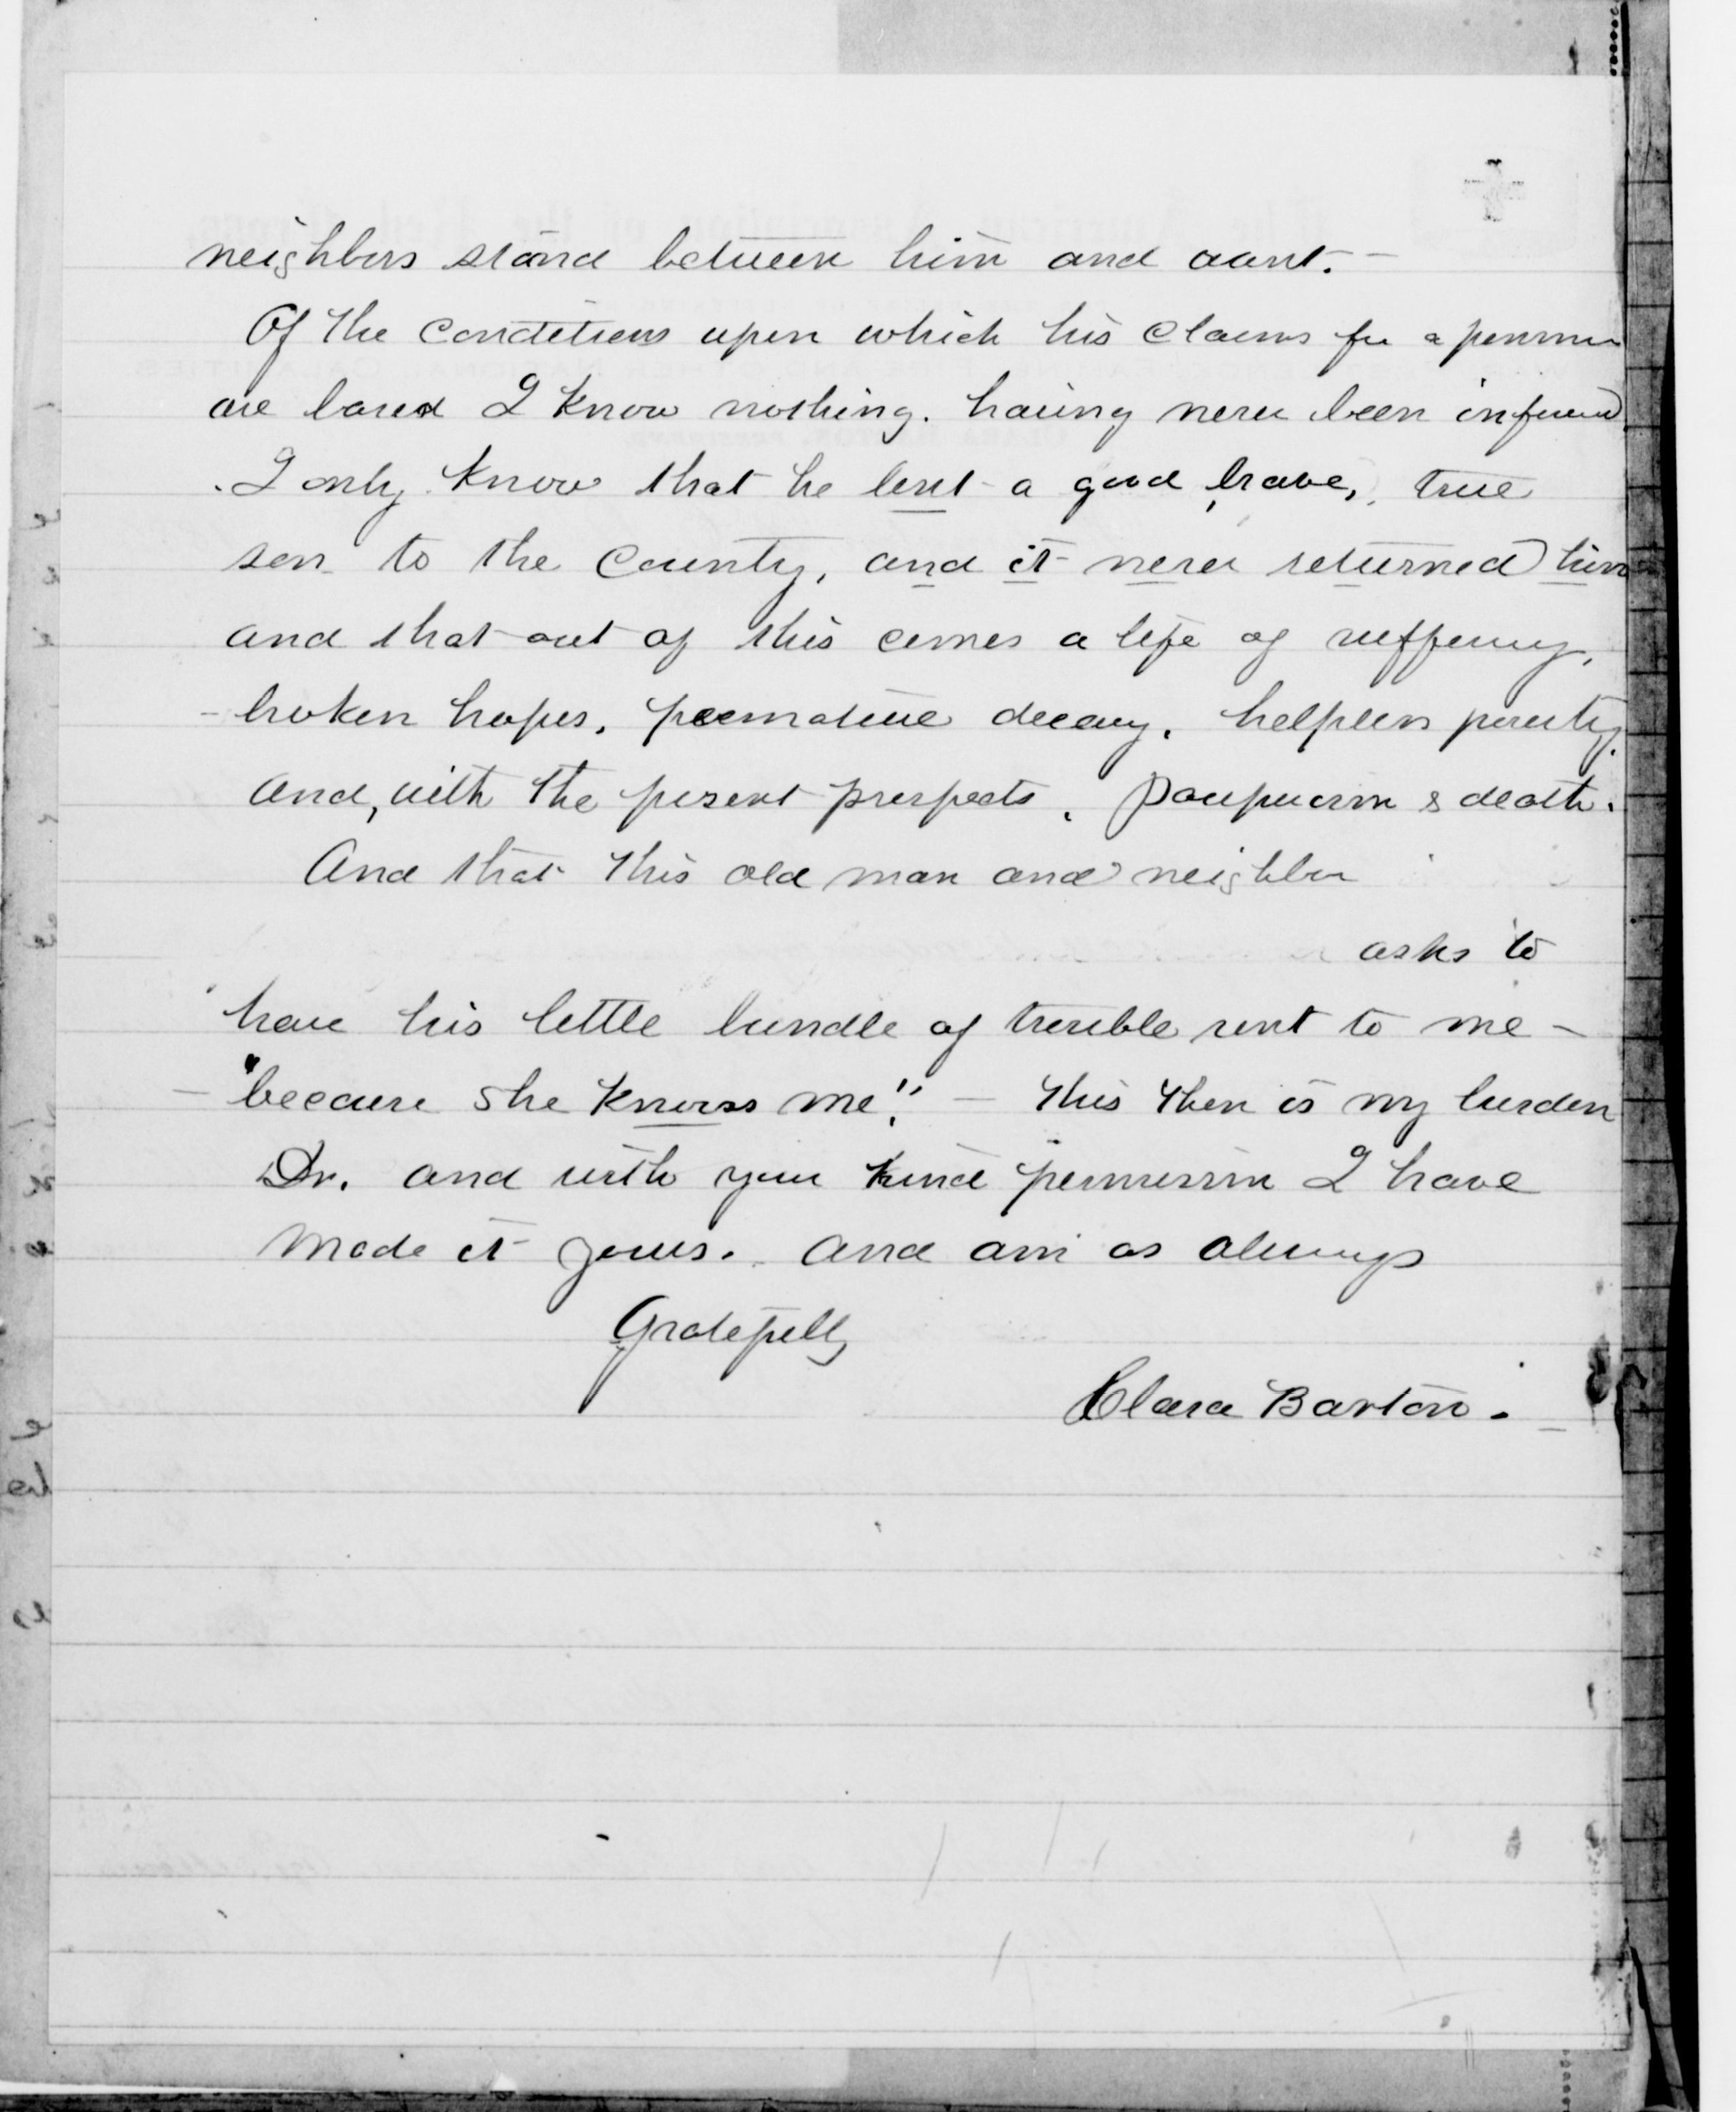 neighbors stand between him and want. -
Of the conditions upon which his claims for a pension
are based I know nothing. having never been informed.
I only know that he lent a good, brave, true
son to the country, and it never returned him
and that out of this comes a life of suffering,
- broken hopes, premature decay, helpless poverty,
and, with the present prospects, pauperism & death.
And that this old man and neighbor
asks to
have his little bundle of trouble sent to me -
- "because she knows me". - This then is my burden
Dr. and with your kind permission I have
made it yours. and am as always
Gratefully
Clara Barton.